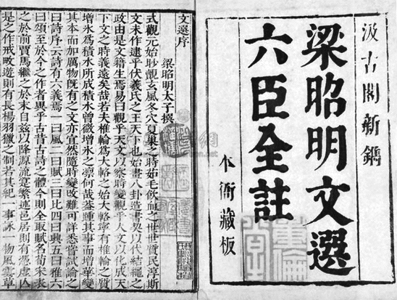 汲古閣新鐫
梁昭明文選
六臣全註
本衙藏板
文選序
梁昭明太子撰
式觀元始眇覿玄風冬穴夏巢之時茹毛飲血之世世質民淳斯
文未作逮乎伏羲氏之王天下也始畫八卦造書契以代結繩之
政由是文籍生焉易曰觀乎天文以察時變觀乎人文以化成天
下文之時義遠矣哉若夫椎輪爲大輅之始大輅寧有椎輪之質
增氷爲積水所成積水曾微增氷之凛何哉蓋踵其事而增華變
其本而加厲物既有之文亦宜然隨時變改難可詳悉嘗試論之
曰詩序云詩有六義焉一曰風二曰賦三曰比四曰興五曰雅六
曰頌至於今之作者異乎古昔古詩之體今則全取賦名荀宋表
之於前賈馬繼之於末自茲以降源流寔繁述邑居則有憑虛亡
是之作戒畋遊則有長楊羽獵之制若其紀一事詠一物風雲草